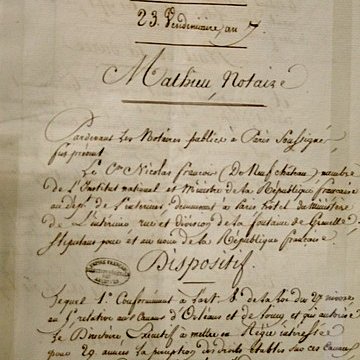 23. Vendemiaire, an 7.
Mathieu, Notaire
Pardevant Les Notaires publics à Paris Soussigné
fut présent
Le Cen. Nicolas francois (De Neufchateau), membre
de L'Institut national et Ministre de la République francaise
au dépt. de L'interieur, demeurant à Paris hotel du Ministère
de L'interieur rue et division de la fontaine de Grenelle,
Stipulant pour et au nom de la République francaise.
Dispositif.
Lequel 1º Conformément à l'art. 8 de la loi du 27 nivose
an 5 relative aux Canaux d'Orléans et de Loing et qui autorise
Le Directoire Exécutif à mettre en Régie intéressée
pour 29 années la perception des droits établis sur ces Canaux